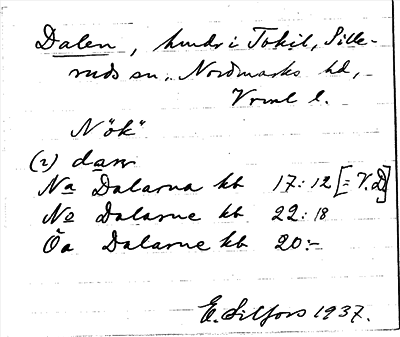 Dalen, hmdr i Tokil, Sille-
ruds sn., Nordmarks hd,
Vrml l.
N"ök"
(2) darr
Na Dalarna kb 17:12 [= V.D]
No Dalarne kb 22:18
Öa Dalarne kb 20:-
E. Lilfors 1937.